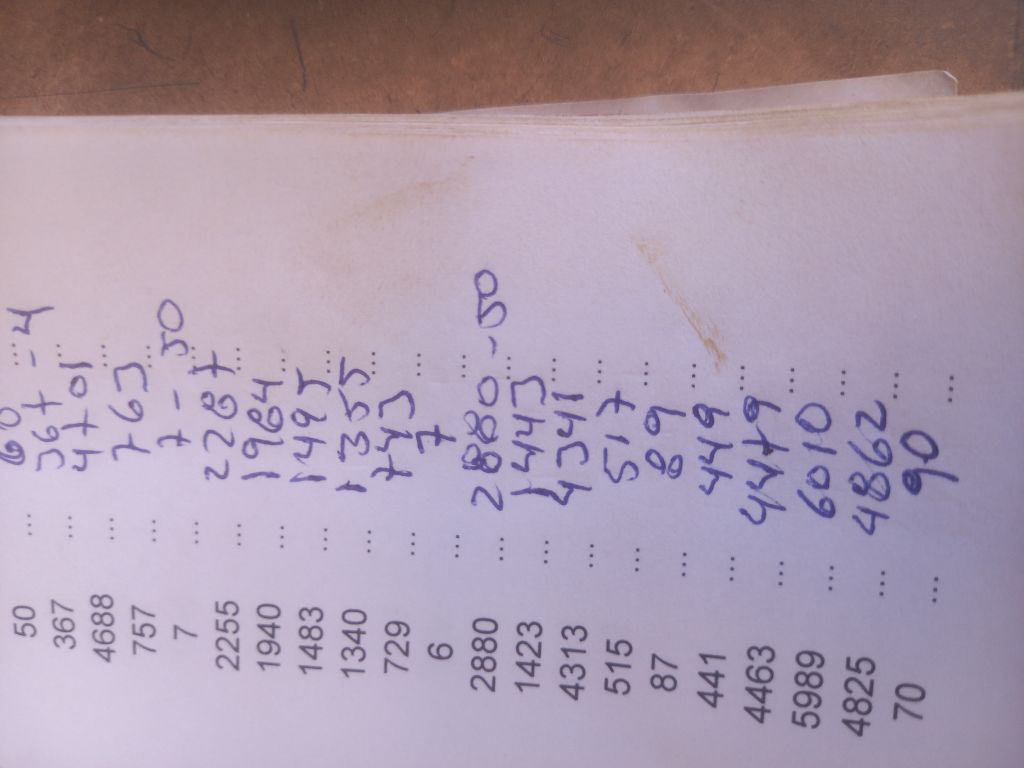 50 ... 60 ...
367 ... 367 - 4 ...
4688 ... 4701 ...
757 ... 763 ...
7 ... 7 - 50
2255 ... 2287 ...
1940 ... 1964 ...
1483 ... 1495 ...
1340 ... 1355 ...
729 ... 743 ...
6 ... 7 ...
2880 ... 2880 - 50 ...
1423 ... 1443 ...
4313 ... 4341 ...
515 ... 517 ...
87 ... 89 ...
441 ... 449 ...
4463 ... 4479 ...
5989 ... 6010 ...
4825 ... 4862 ...
70 ... 90 ...